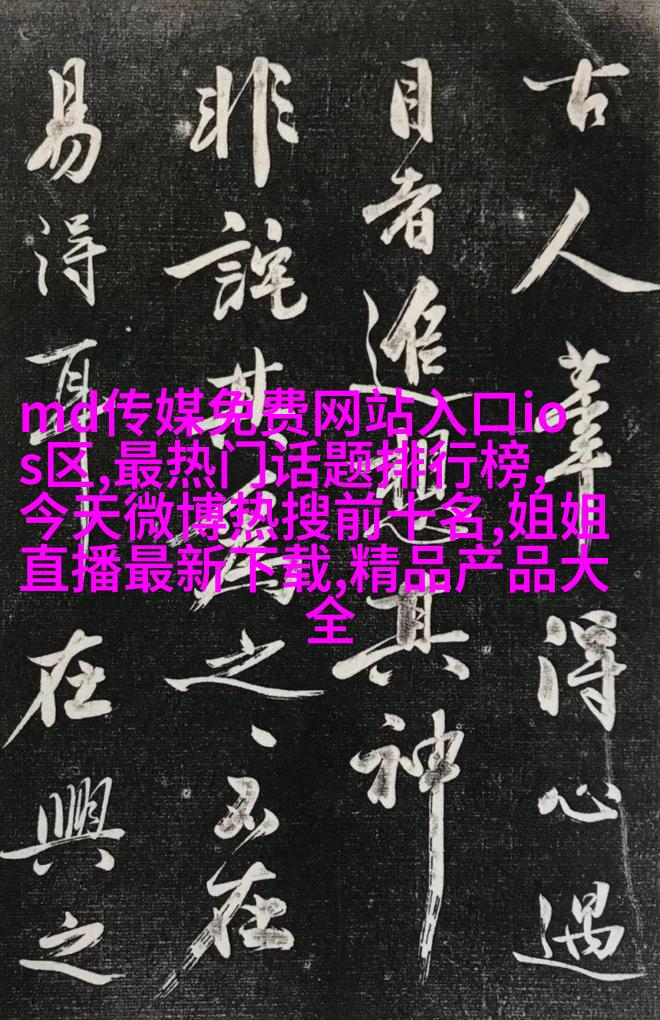 古人筆得心遇
目者追想其神
非詫其為之、不在
易得耳在興之
md传媒免费网站入口io
s区,最热门话题排行榜,
今天微博热搜前十名,姐姐
直播最新下载,精品产品大
全